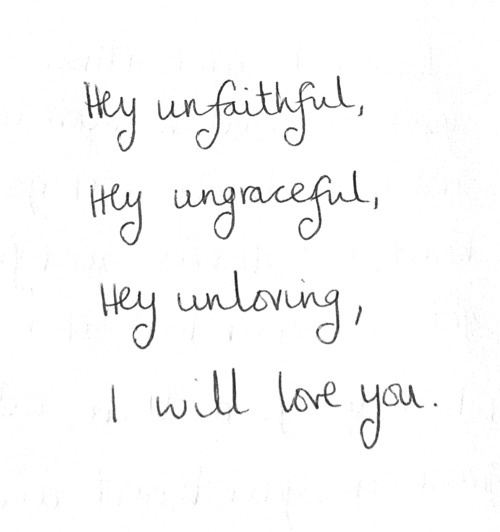 Hey unfaithful,
Hey ungraceful,
Hey unloving,
I will love you.